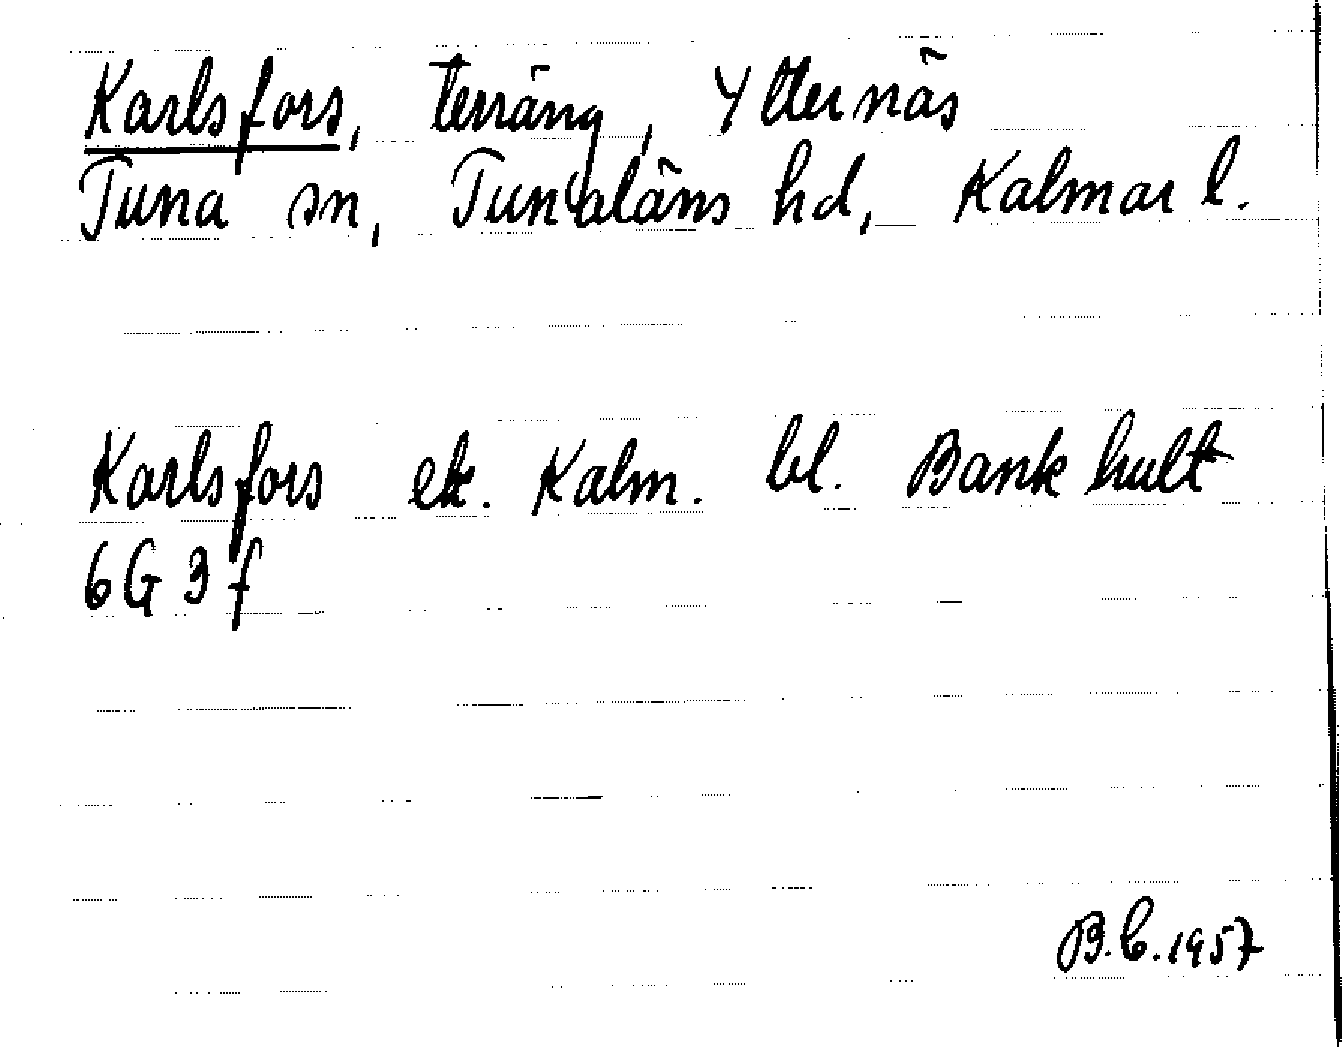 Karlsfors, terräng, Ytternäs
Tuna sn, Tunaläns hd, Kalmar l.
Karlsfors ek. Kalm. bl. Bankhult
6G 3f
B.C. 1957